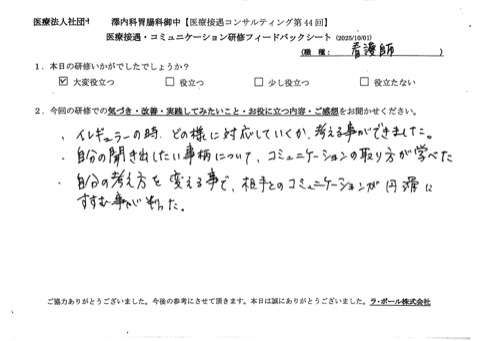 医療法人社団 澤内科胃腸科御中【医療接遇コンサルティング第44回】
医療接遇・コミュニケーション研修フィードバックシート (2025/10/01)
(職種: 看護師 )
1．本日の研修いかがでしたでしょうか？
☑ 大変役立つ □ 役立つ □ 少し役立つ □ 役立たない
2．今回の研修での気づき・改善・実践してみたいこと・お役に立つ内容・ご感想をお聞かせください。
・イレギュラーの時、どの様に対応していくか、考える事ができました。
・自分の聞き出したい事柄について、コミュニケーションの取り方が学べた
・自分の考え方を変える事で、相手とのコミュニケーションが円滑に
すすむ事が判った。
ご協力ありがとうございました。今後の参考にさせて頂きます。本日は誠にありがとうございました。ラ・ポール株式会社